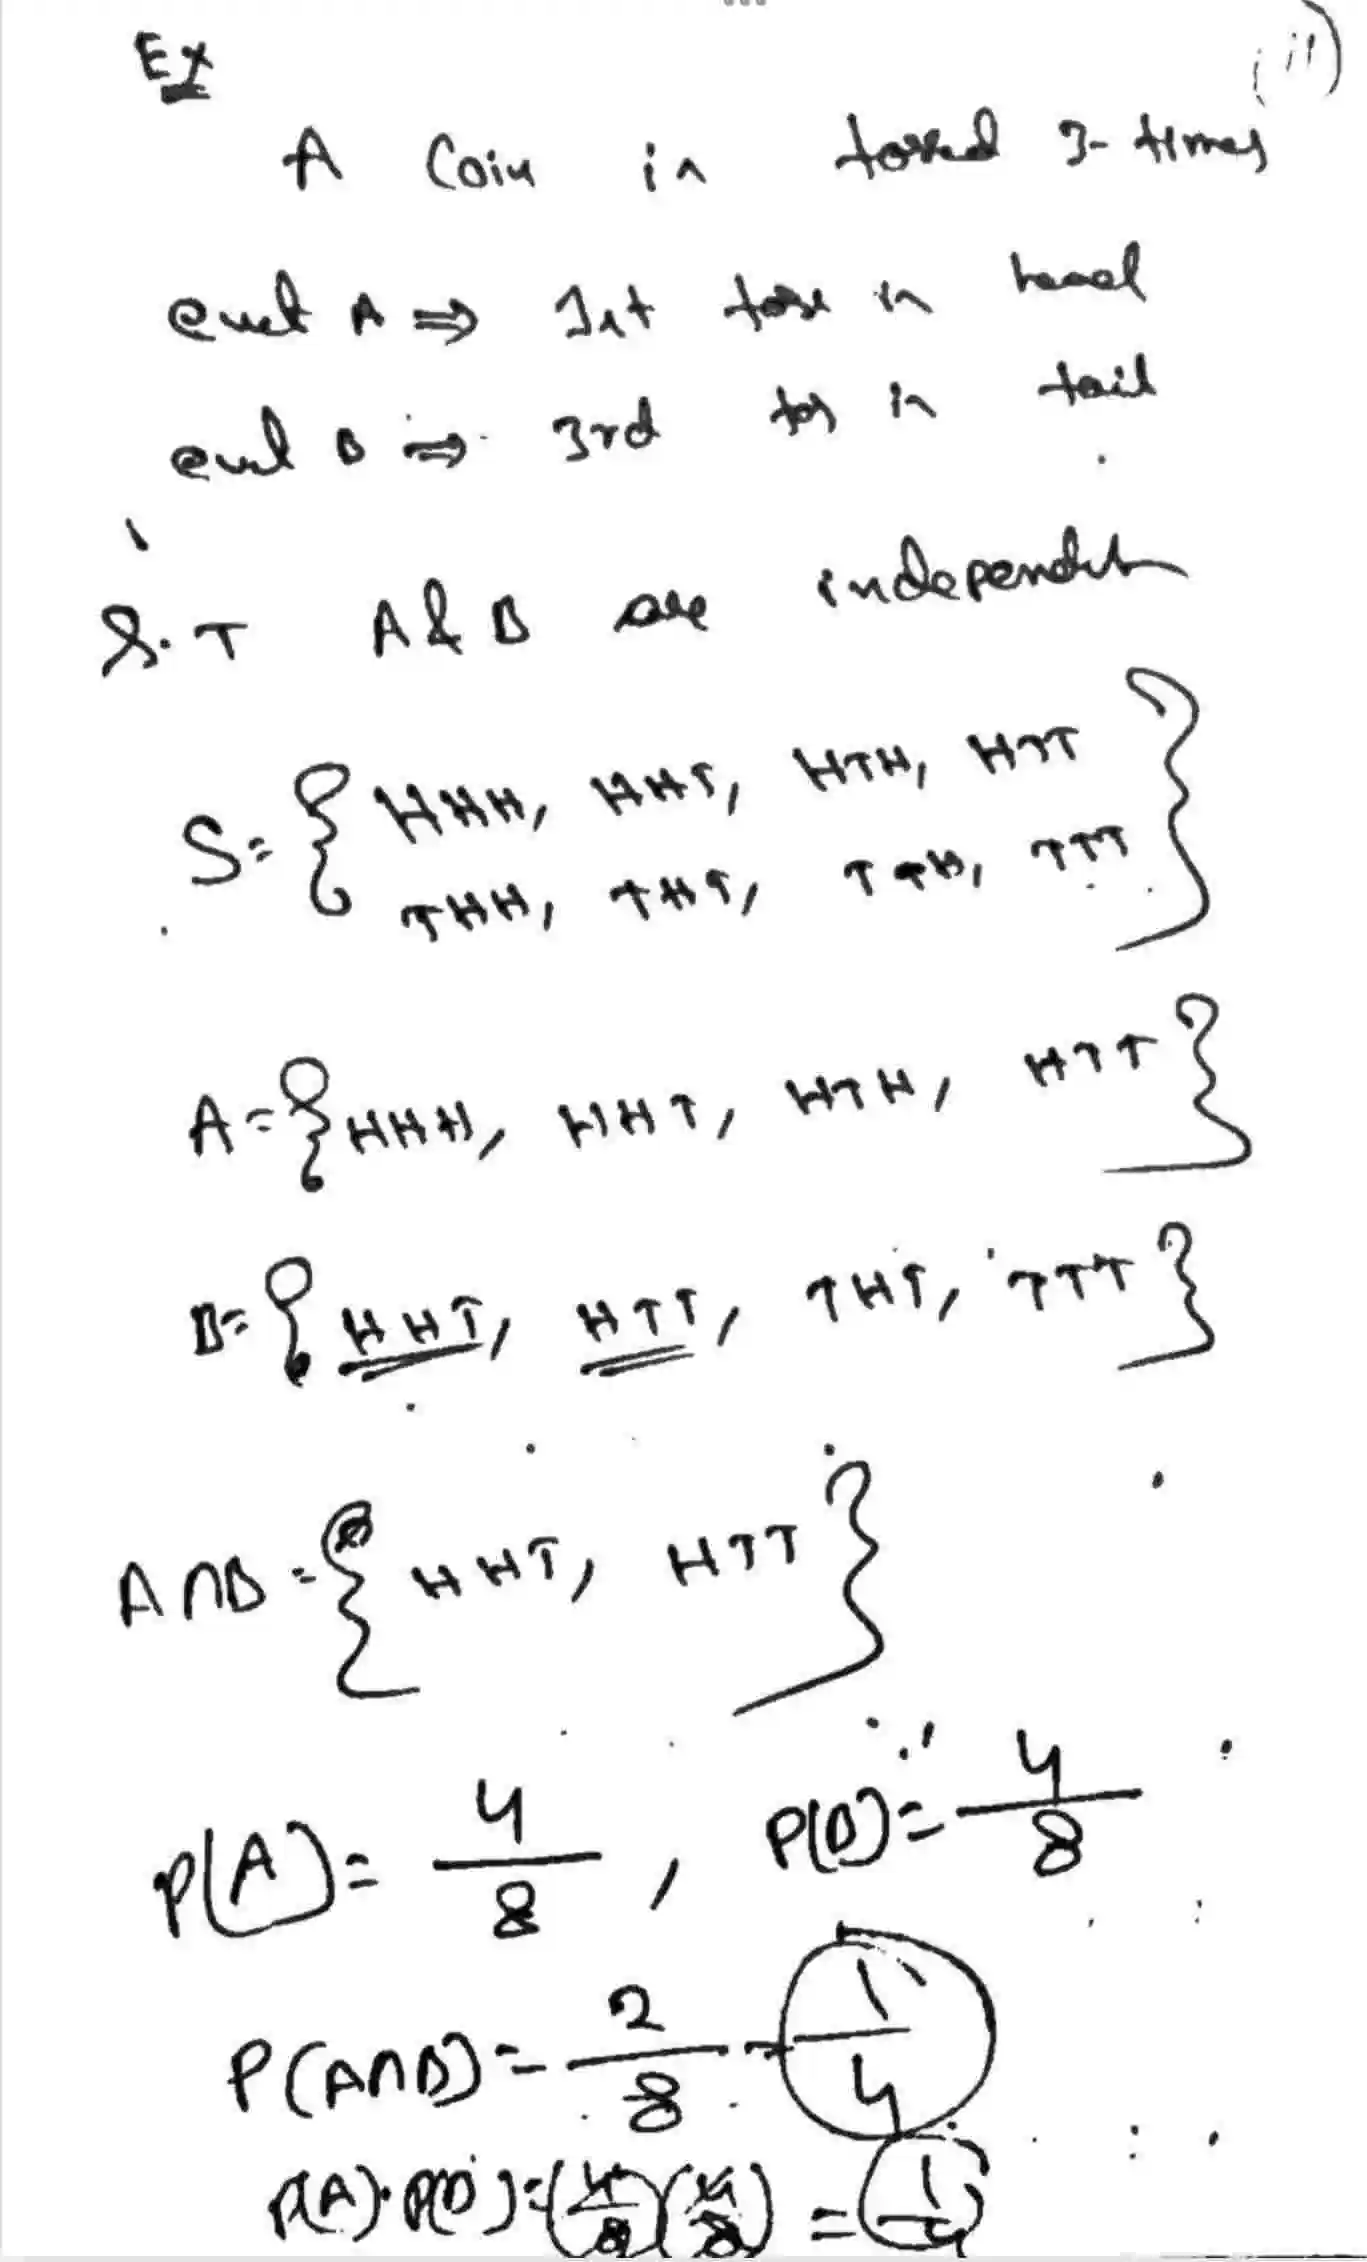 Ex
(ii)
A Coin is tossed 3-times
event A ⇒ 1st toss is head
event B ⇒ 3rd toss is tail
S.T A & B are independent
S = { HHH, HHT, HTH, HTT
THH, THT, TTH, TTT }
A = { HHH, HHT, HTH, HTT }
B = { HHT, HTT, THT, TTT }
A∩B = { HHT, HTT }
P(A) = 4/8 , P(B) = 4/8
P(A∩B) = 2/8 = 1/4
P(A)·P(B) = (4/8)(4/8) = 1/4